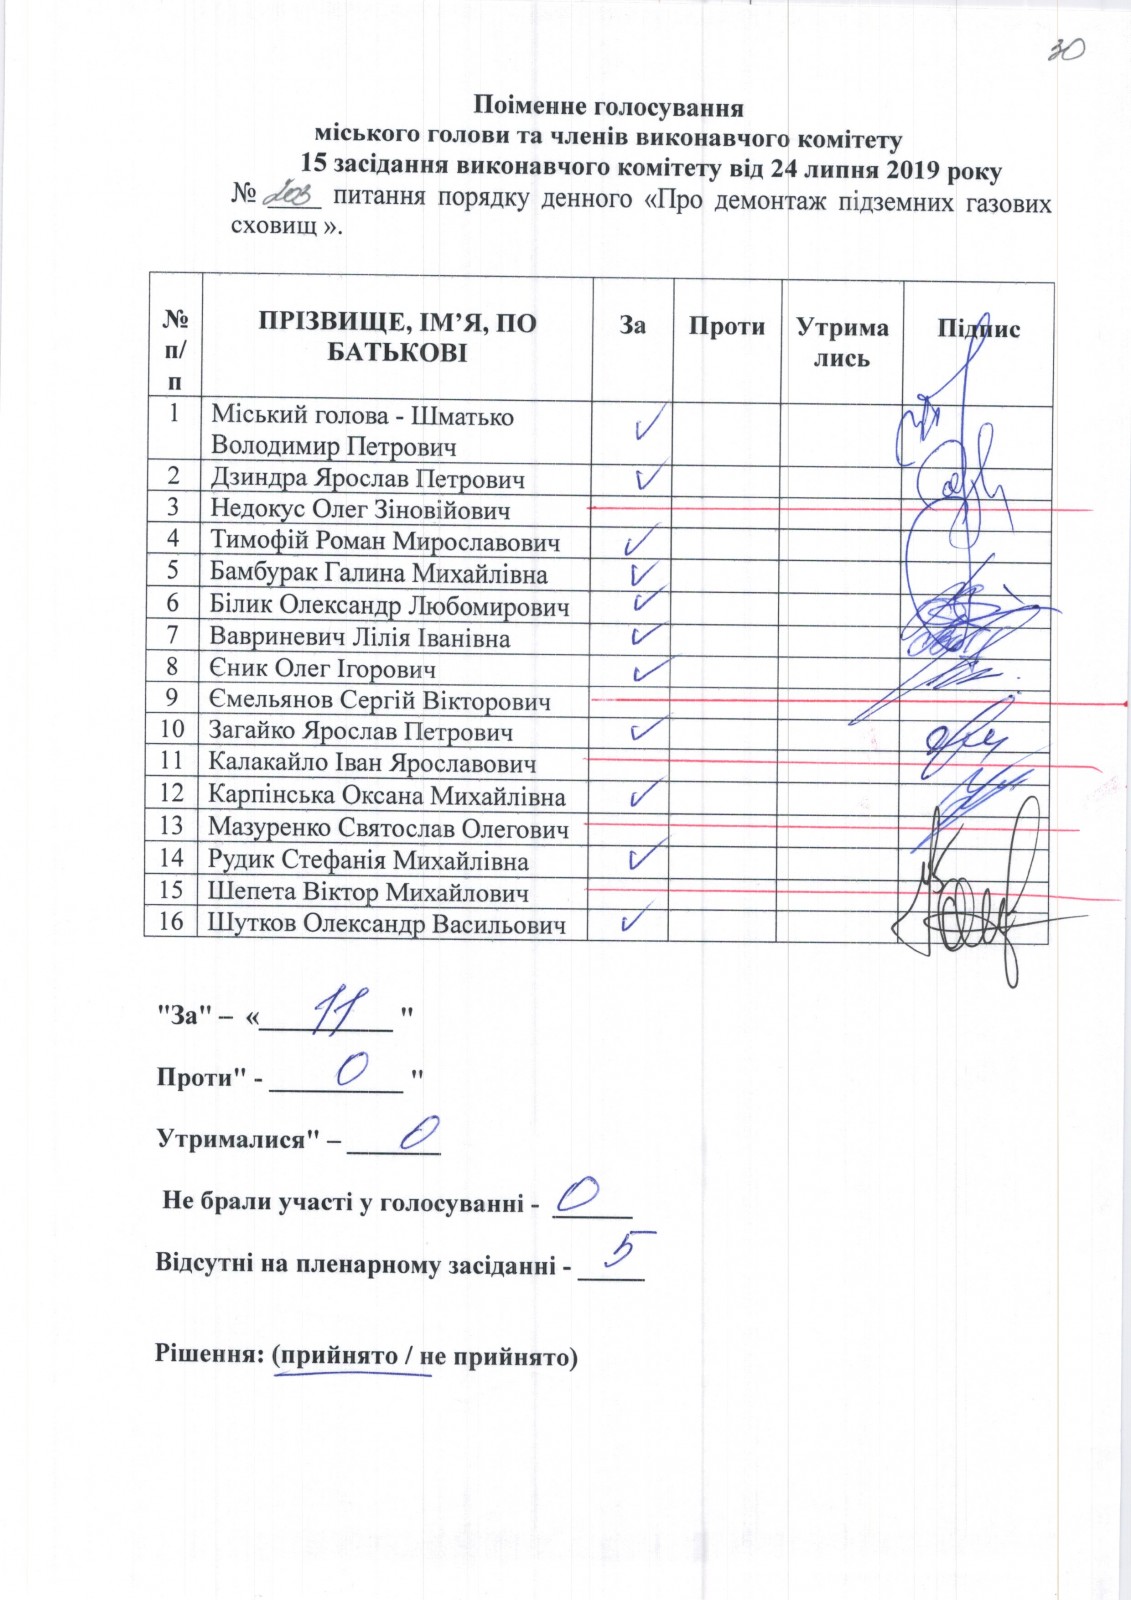 30
Поіменне голосування
міського голови та членів виконавчого комітету
15 засідання виконавчого комітету від 24 липня 2019 року
№ 203 питання порядку денного «Про демонтаж підземних газових
сховищ ».
№ п/п ПРІЗВИЩЕ, ІМ’Я, ПО БАТЬКОВІ За Проти Утрима лись Підпис
1 Міський голова - Шматько
Володимир Петрович ✓
2 Дзиндра Ярослав Петрович ✓
3 Недокус Олег Зіновійович
4 Тимофій Роман Мирославович ✓
5 Бамбурак Галина Михайлівна ✓
6 Білик Олександр Любомирович ✓
7 Вавриневич Лілія Іванівна ✓
8 Єник Олег Ігорович ✓
9 Ємельянов Сергій Вікторович
10 Загайко Ярослав Петрович ✓
11 Калакайло Іван Ярославович
12 Карпінська Оксана Михайлівна ✓
13 Мазуренко Святослав Олегович
14 Рудик Стефанія Михайлівна ✓
15 Шепета Віктор Михайлович
16 Шутков Олександр Васильович ✓
"За" – « 11 "
Проти" - 0 "
Утрималися" – 0
Не брали участі у голосуванні - 0
Відсутні на пленарному засіданні - 5
Рішення: (прийнято / не прийнято)